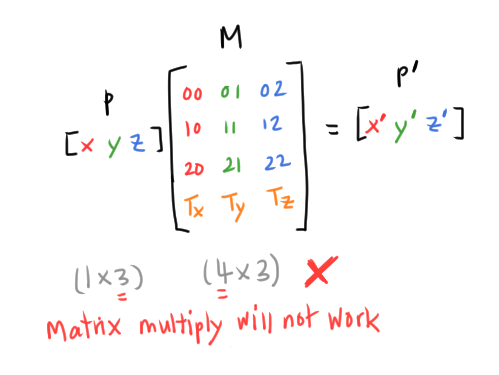 M
P
P'
[x y z] [00 01 02
10 11 12
20 21 22
Tx Ty Tz] = [x' y' z']
(1x3) (4x3) X
Matrix multiply will not work